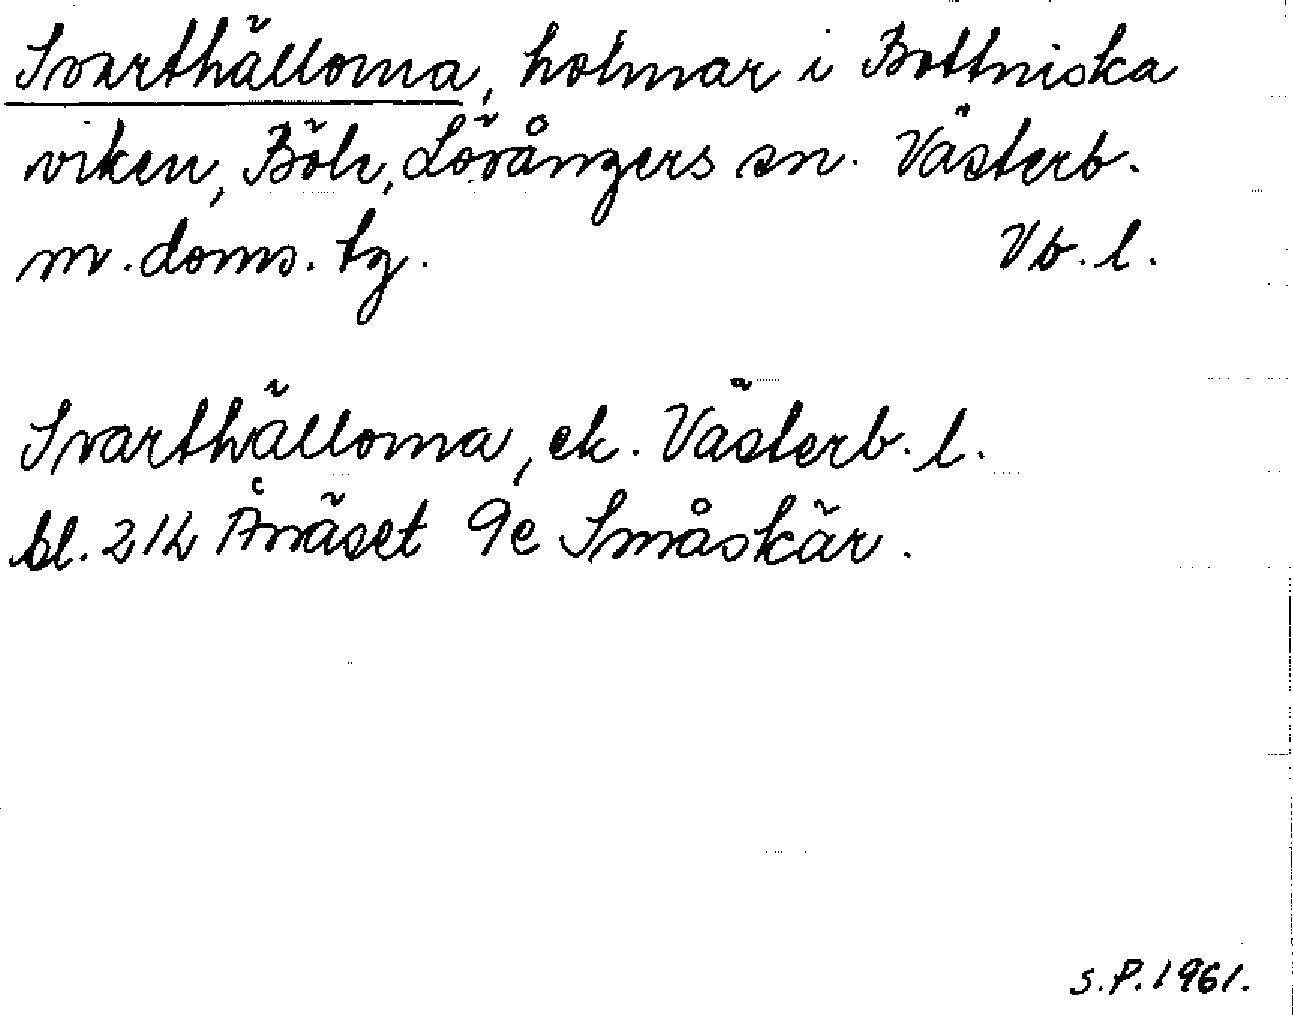 Svarthällorna, holmar i Bottniska
viken, Böle, Lövångers sn. Västerb.
m. doms. tg. Vb. l.
Svarthällorna, ek. Västerb. l.
bl. 21L Ånäset 9e Småskär.
S.P. 1961.